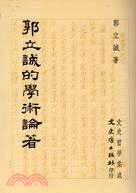 郭立誠著
文史哲學集成
文史哲出版社印行
郭立誠的學術論著